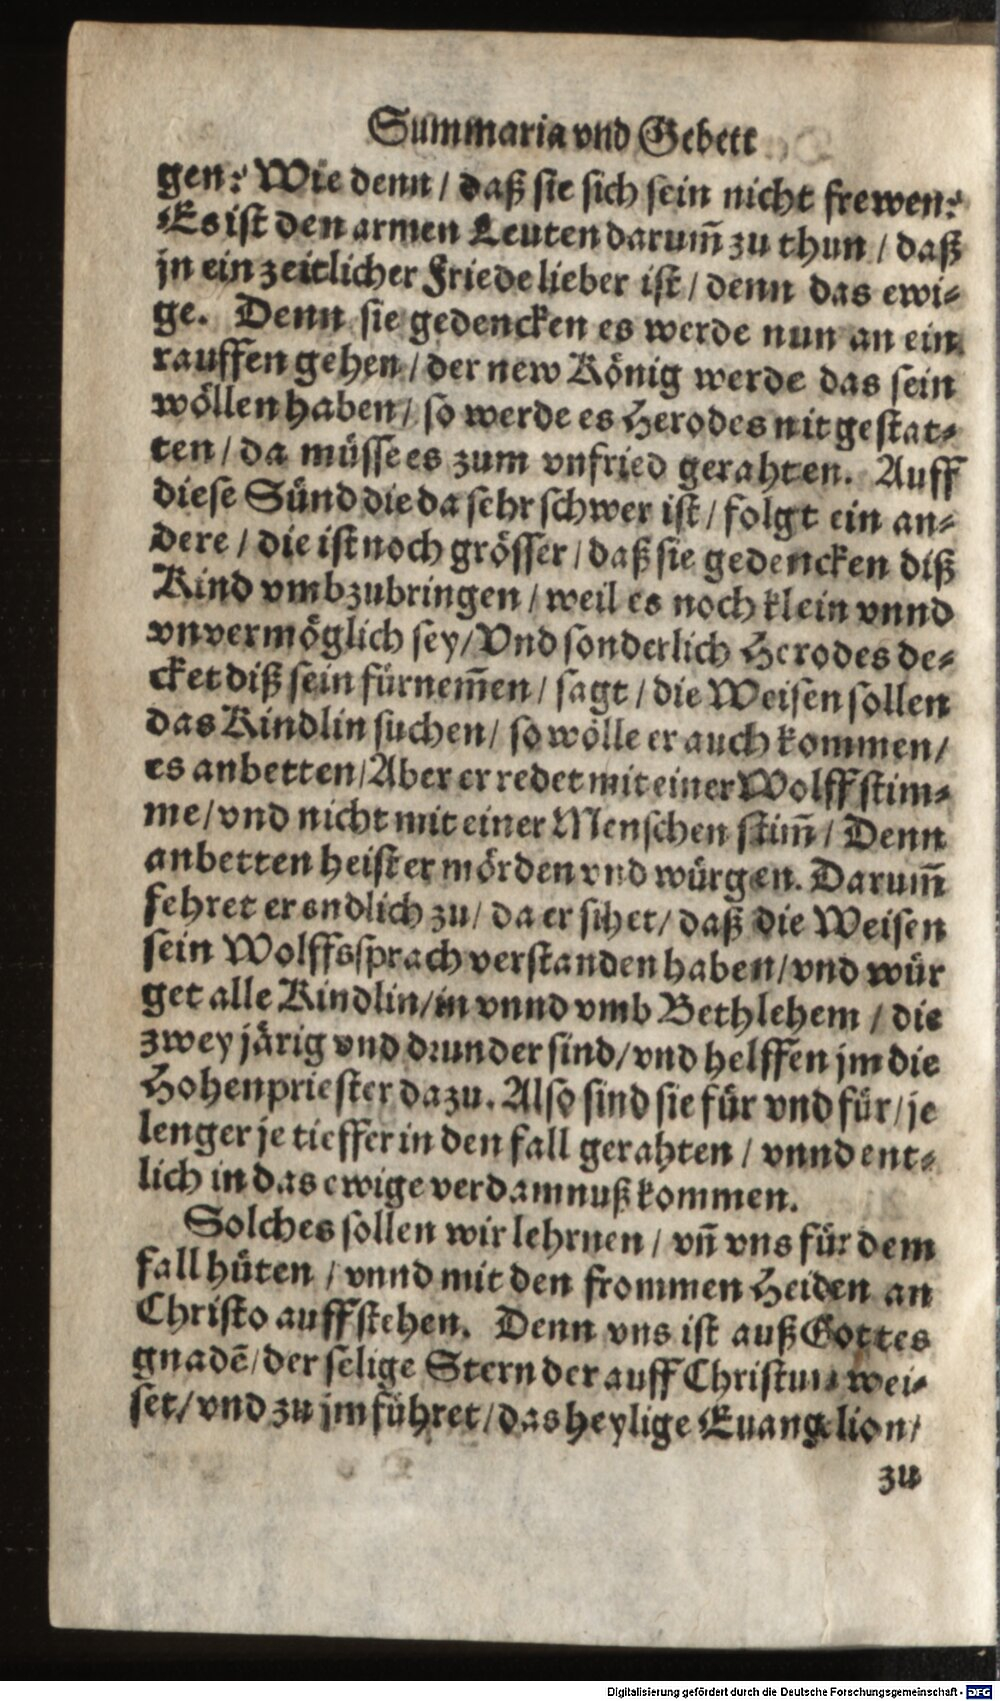 Summaria vnd Gebett
gen? Wie denn / daß sie sich sein nicht frewen?
Es ist den armen Leuten darum̃ zu thun / daß
jn ein zeitlicher Friede lieber ist / denn das ewi-
ge. Denn sie gedencken es werde nun an ein
rauffen gehen / der new König werde das sein
wöllen haben / so werde es Herodes nit gestat-
ten / da müsse es zum vnfried gerahten. Auff
diese Sünd die da sehr schwer ist / folgt ein an-
dere / die ist noch grösser / daß sie gedencken diß
Kind vmbzubringen / weil es noch klein vnnd
vnvermöglich sey / Vnd sonderlich Herodes de-
cket diß sein fürnem̃en / sagt / die Weisen sollen
das Kindlin suchen / so wölle er auch kommen /
es anbetten / Aber er redet mit einer Wolffstim-
me / vnd nicht mit einer Menschen stim̃ / Denn
anbetten heist er mörden vnd würgen. Darum̃
fehret er endlich zu / da er sihet / daß die Weisen
sein Wolffssprach verstanden haben / vnd wür
get alle Kindlin / in vnnd vmb Bethlehem / die
zwey järig vnd drunder sind / vnd helffen jm die
Hohenpriester dazu. Also sind sie für vnd für / je
lenger je tieffer in den fall gerahten / vnnd ent-
lich in das ewige verdamnuß kommen.
Solches sollen wir lehrnen / vñ vns für dem
fall hüten / vnnd mit den frommen Heiden an
Christo auffstehen. Denn vns ist auß Gottes
gnadẽ / der selige Stern der auff Christum wei-
set / vnd zu jm führet / das heylige Euangelion /
zu
Digitalisierung gefördert durch die Deutsche Forschungsgemeinschaft - DFG